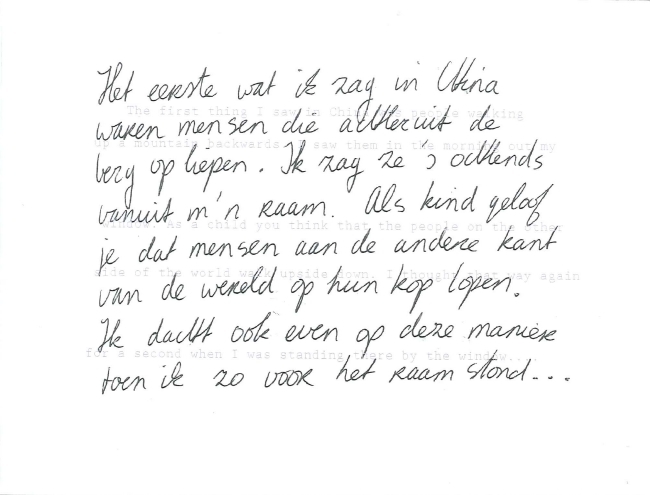 Het eerste wat ik zag in China
The first thing I saw in China were people walking
waren mensen die achteruit de
up a mountain backwards. I saw them in the morning out my
berg op liepen. Ik zag ze 's ochtends
vanuit m'n raam. Als kind geloof
window. As a child you think that the people on the other
je dat mensen aan de andere kant
side of the world walk upside down. I thought that way again
van de wereld op hun kop lopen.
Ik dacht ook even op deze manier
for a second when I was standing there by the window...
toen ik zo voor het raam stond...